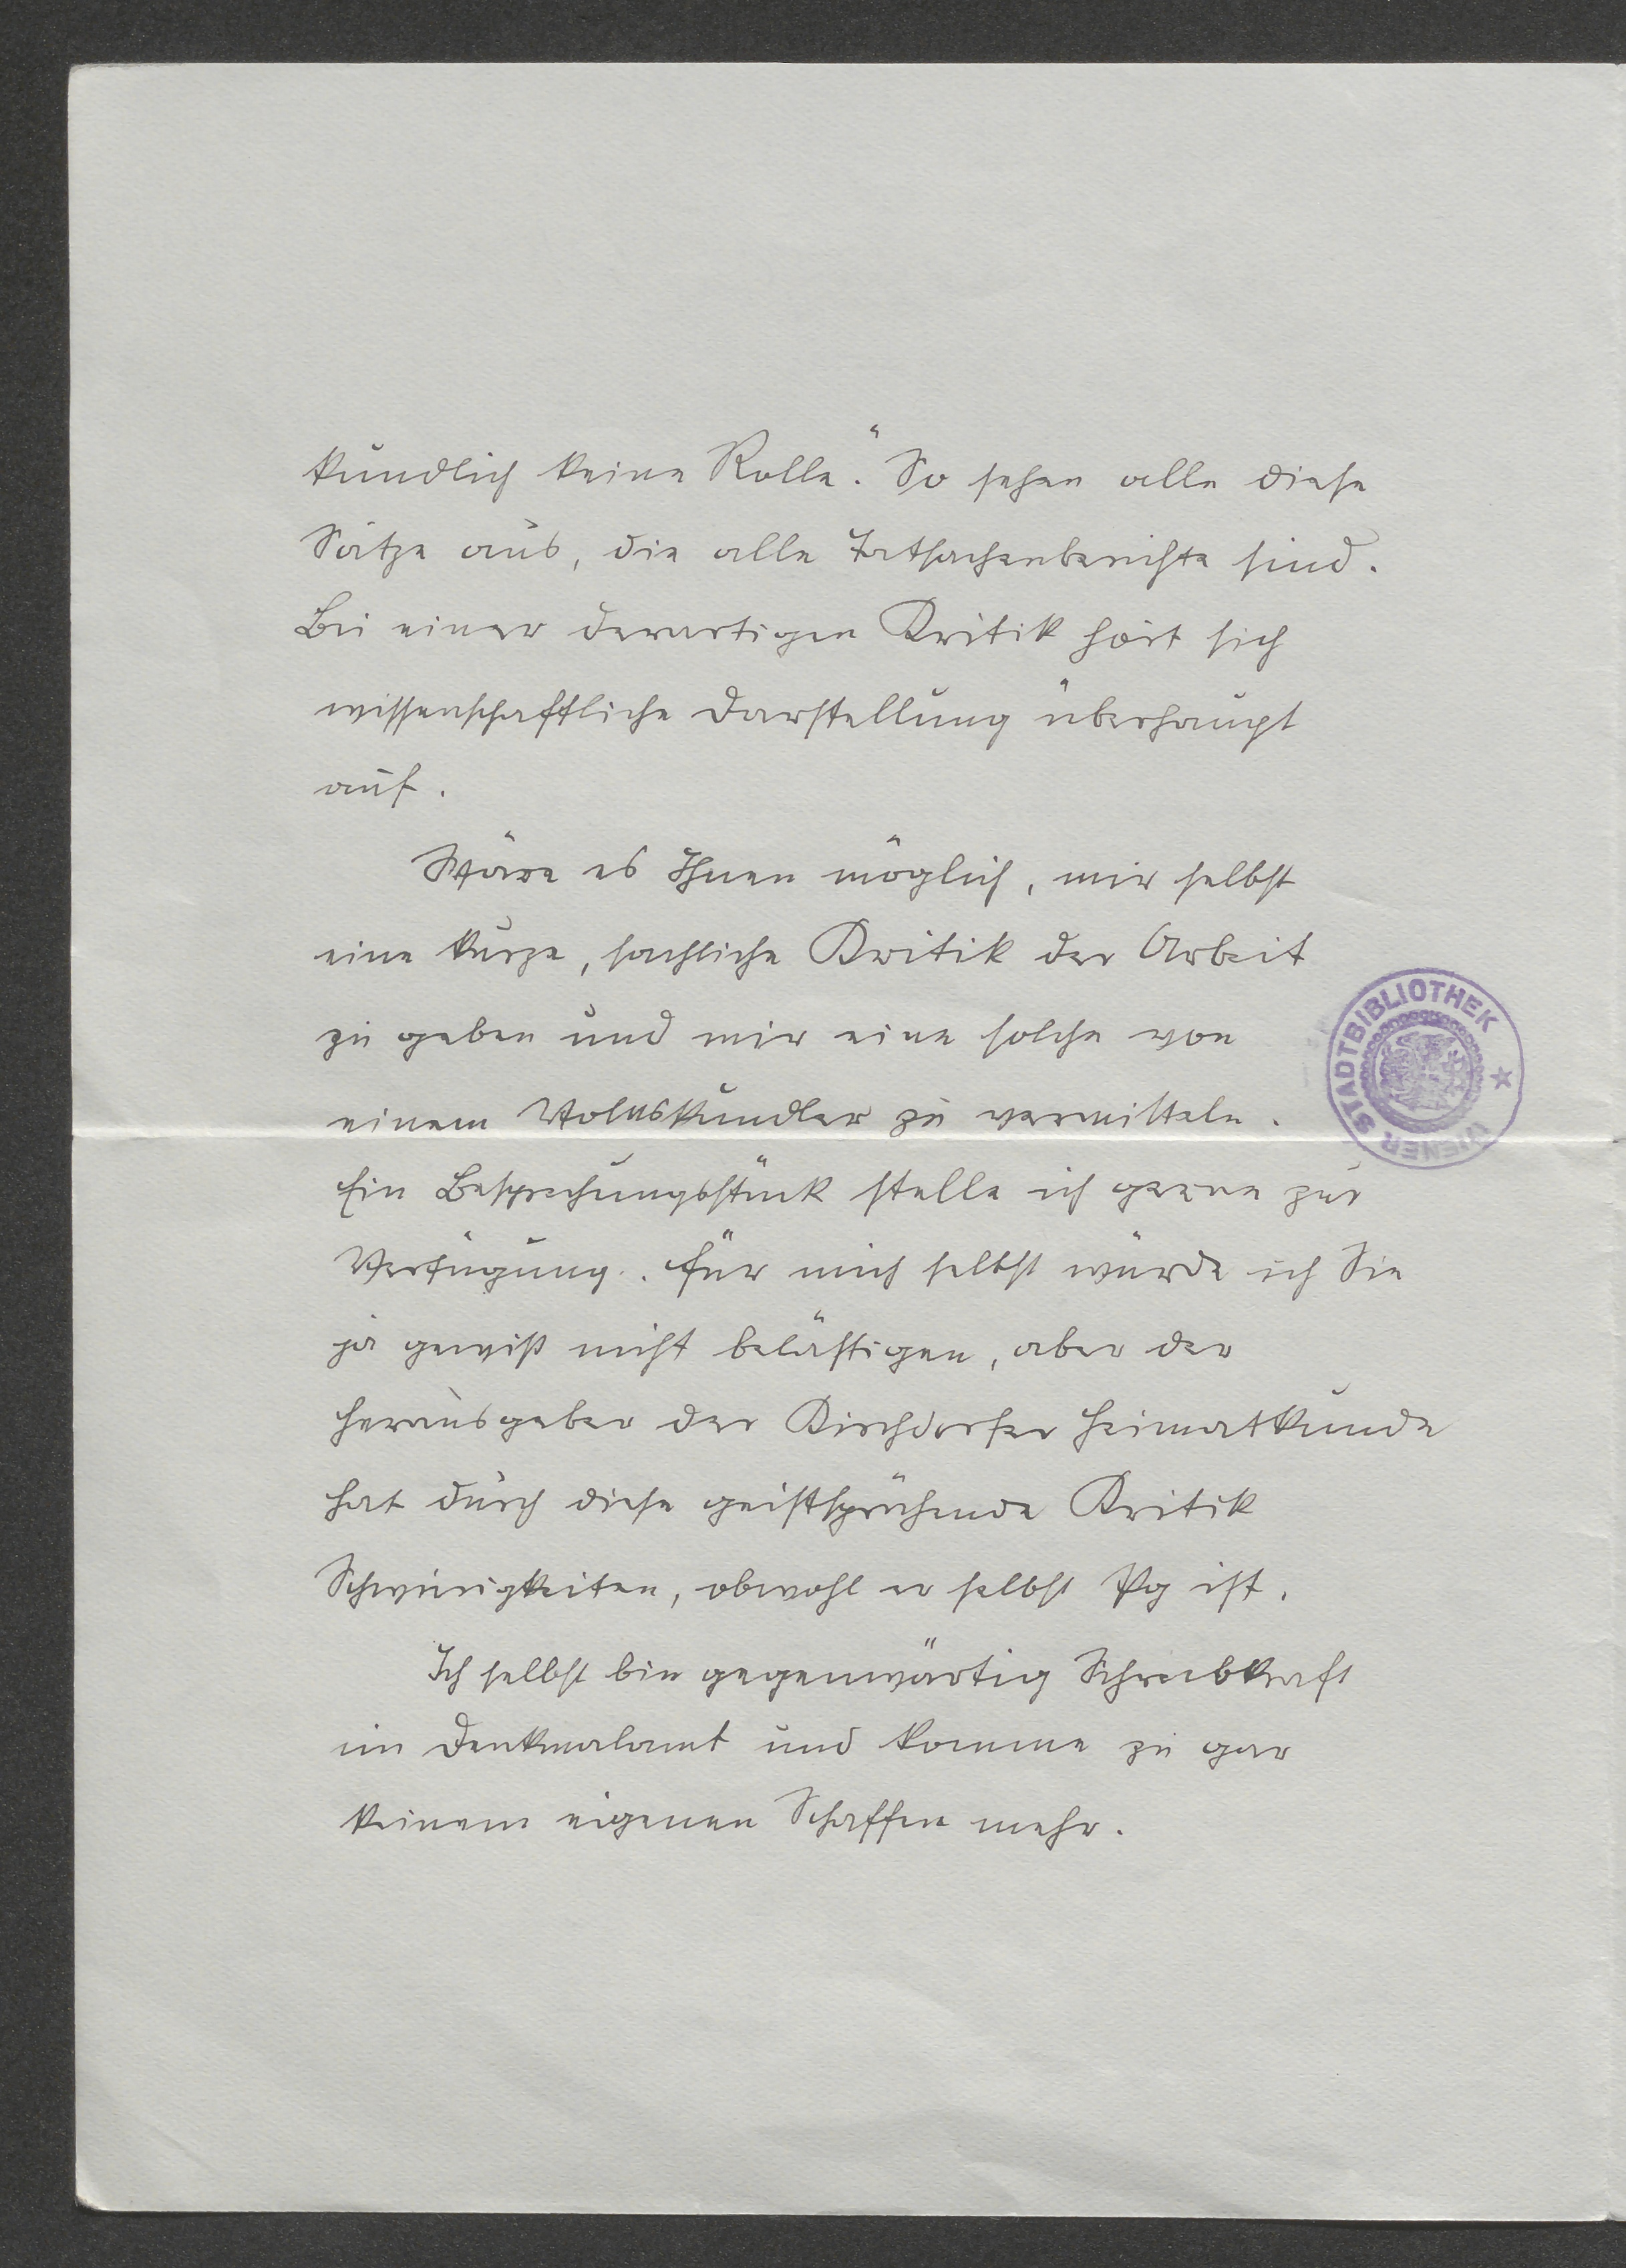 kundlich keine Rolle." So sehen alle diese
Sätze aus, die alle Tatsachenberichte sind.
Bei einer derartigen Kritik hört sich
wissenschaftliche Darstellung überhaupt
auf.
Wäre es Ihnen möglich, mir selbst
eine kurze, sachliche Kritik der Arbeit
zu geben und mir eine solche von
einem Volkskundler zu vermitteln.
Ein Besprechungsstück stelle ich gerne zur
Verfügung. Für mich selbst würde ich Sie
ja gewiß nicht belästigen, aber der
Herausgeber der Kirchdorfer Heimatkunde
hat durch diese geistsprühende Kritik
Schwierigkeiten, obwohl er selbst Pg ist.
Ich selbst bin gegenwärtig Schreibkraft
im Denkmalamt und komme zu gar
keinem eigenen Schaffen mehr.
WIENER STADTBIBLIOTHEK